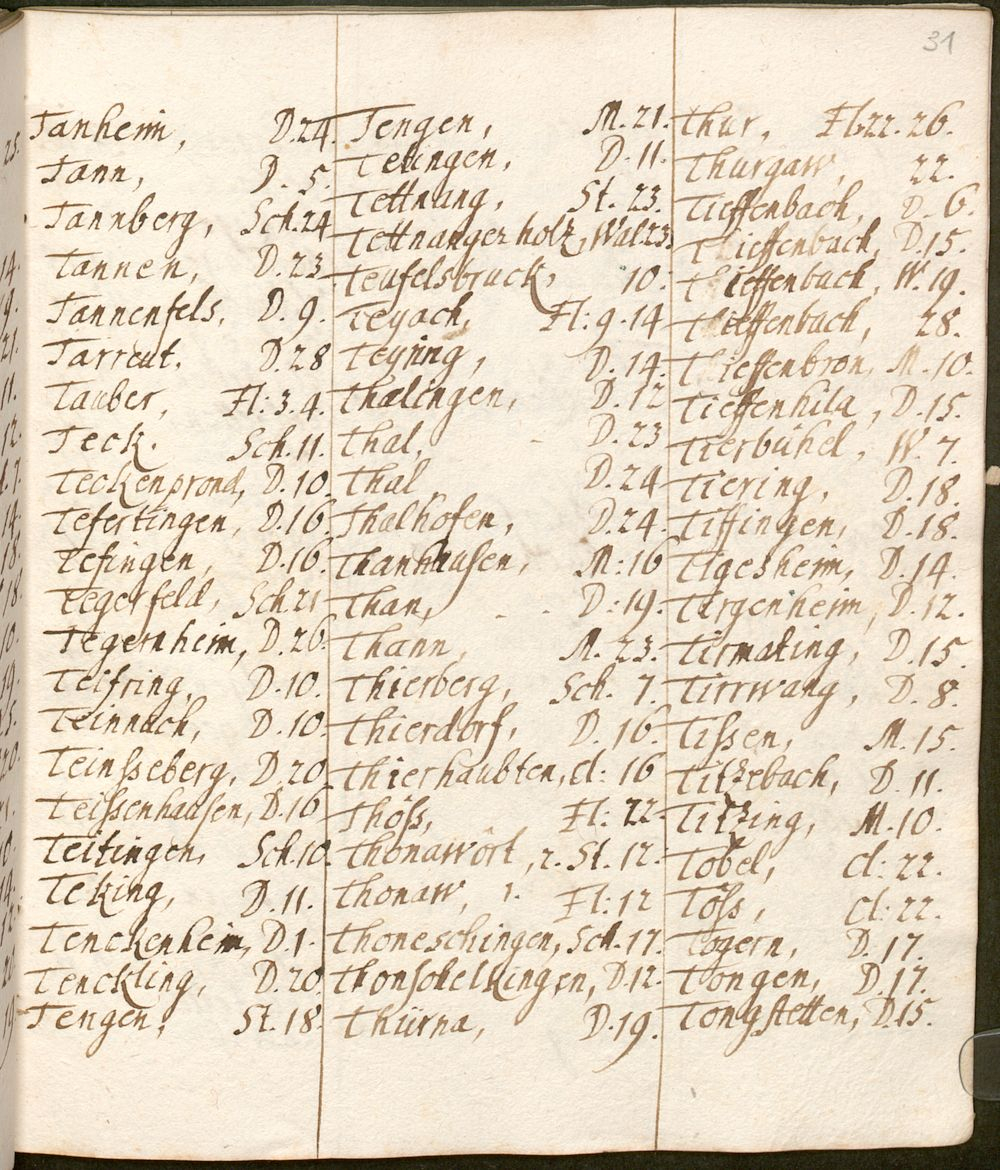 31
Tanheim, D.24.
Tann, D. 5.
Tannberg, Sch.24
Tannen, D.23
Tannenfels, D. 9.
Tarreut. D.28
Tauber, Fl: 3.4.
Teck. Sch.11.
Teckenprond, D.10
Tefertingen, D.16
Tefingen, D.16.
Tegerfeld, Sch.21
Tegernheim, D.26.
Teifring, D.10.
Teinnach, D.10.
Teinsseberg, D.20
Teissenhausen, D.16
Teitingen, Sch.10.
Teking, D.11.
Tenckenheim, D.1.
Tenckling, D.20.
Tengen, St.18.
Tengen, M.21.
Tetingen, D.11.
Tettnang, St. 23.
Tettnanger holz, Wal.23.
Teufelsbruck, 10.
Teyach, Fl: 9.14
Teyring, D.14.
Thalingen, D.12
Thal, D.23
Thal D.24
Thalhofen, D.24.
Thanhausen, M:16
Than, D:19.
Thann, M. 23.
Thierberg, Sch. 7.
Thierdorf, D. 16.
Thierhaubten, cl: 16
Thöss, Fl: 22.
Thonawört, 2. St. 12.
Thonaw, 1. Fl: 12
Thoneschingen, Sch.17.
Thonsohelkingen, D.12.
Thürna, D.19.
Thur, Fl.22.26.
Thurgaw, 22.
Tieffenbach, D. 6.
Tieffenbach, D.15.
Tieffenbach, W.19.
Tieffenbach, 28.
Tieffenbron, M.10.
Tieffenhila, D.15.
Tierbühel, W. 7.
Tiering, D.18.
Tiffingen, D.18.
Tigesheim, D.14.
Tirgenheim, D.12.
Tirmating, D.15.
Tirrwang, D. 8.
Tissen, M.15.
Titzebach, D. 11.
Titzing, M.10.
Tobel, cl: 22.
Töss, cl: 22.
Togern, D.17.
Tongen, D.17.
Tongstetten, D.15.